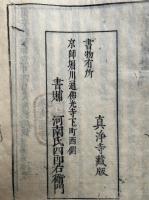 真淨寺藏版
書物有所
京師堀川通佛光寺下町西側
書肆 河南氏四郎右衞門